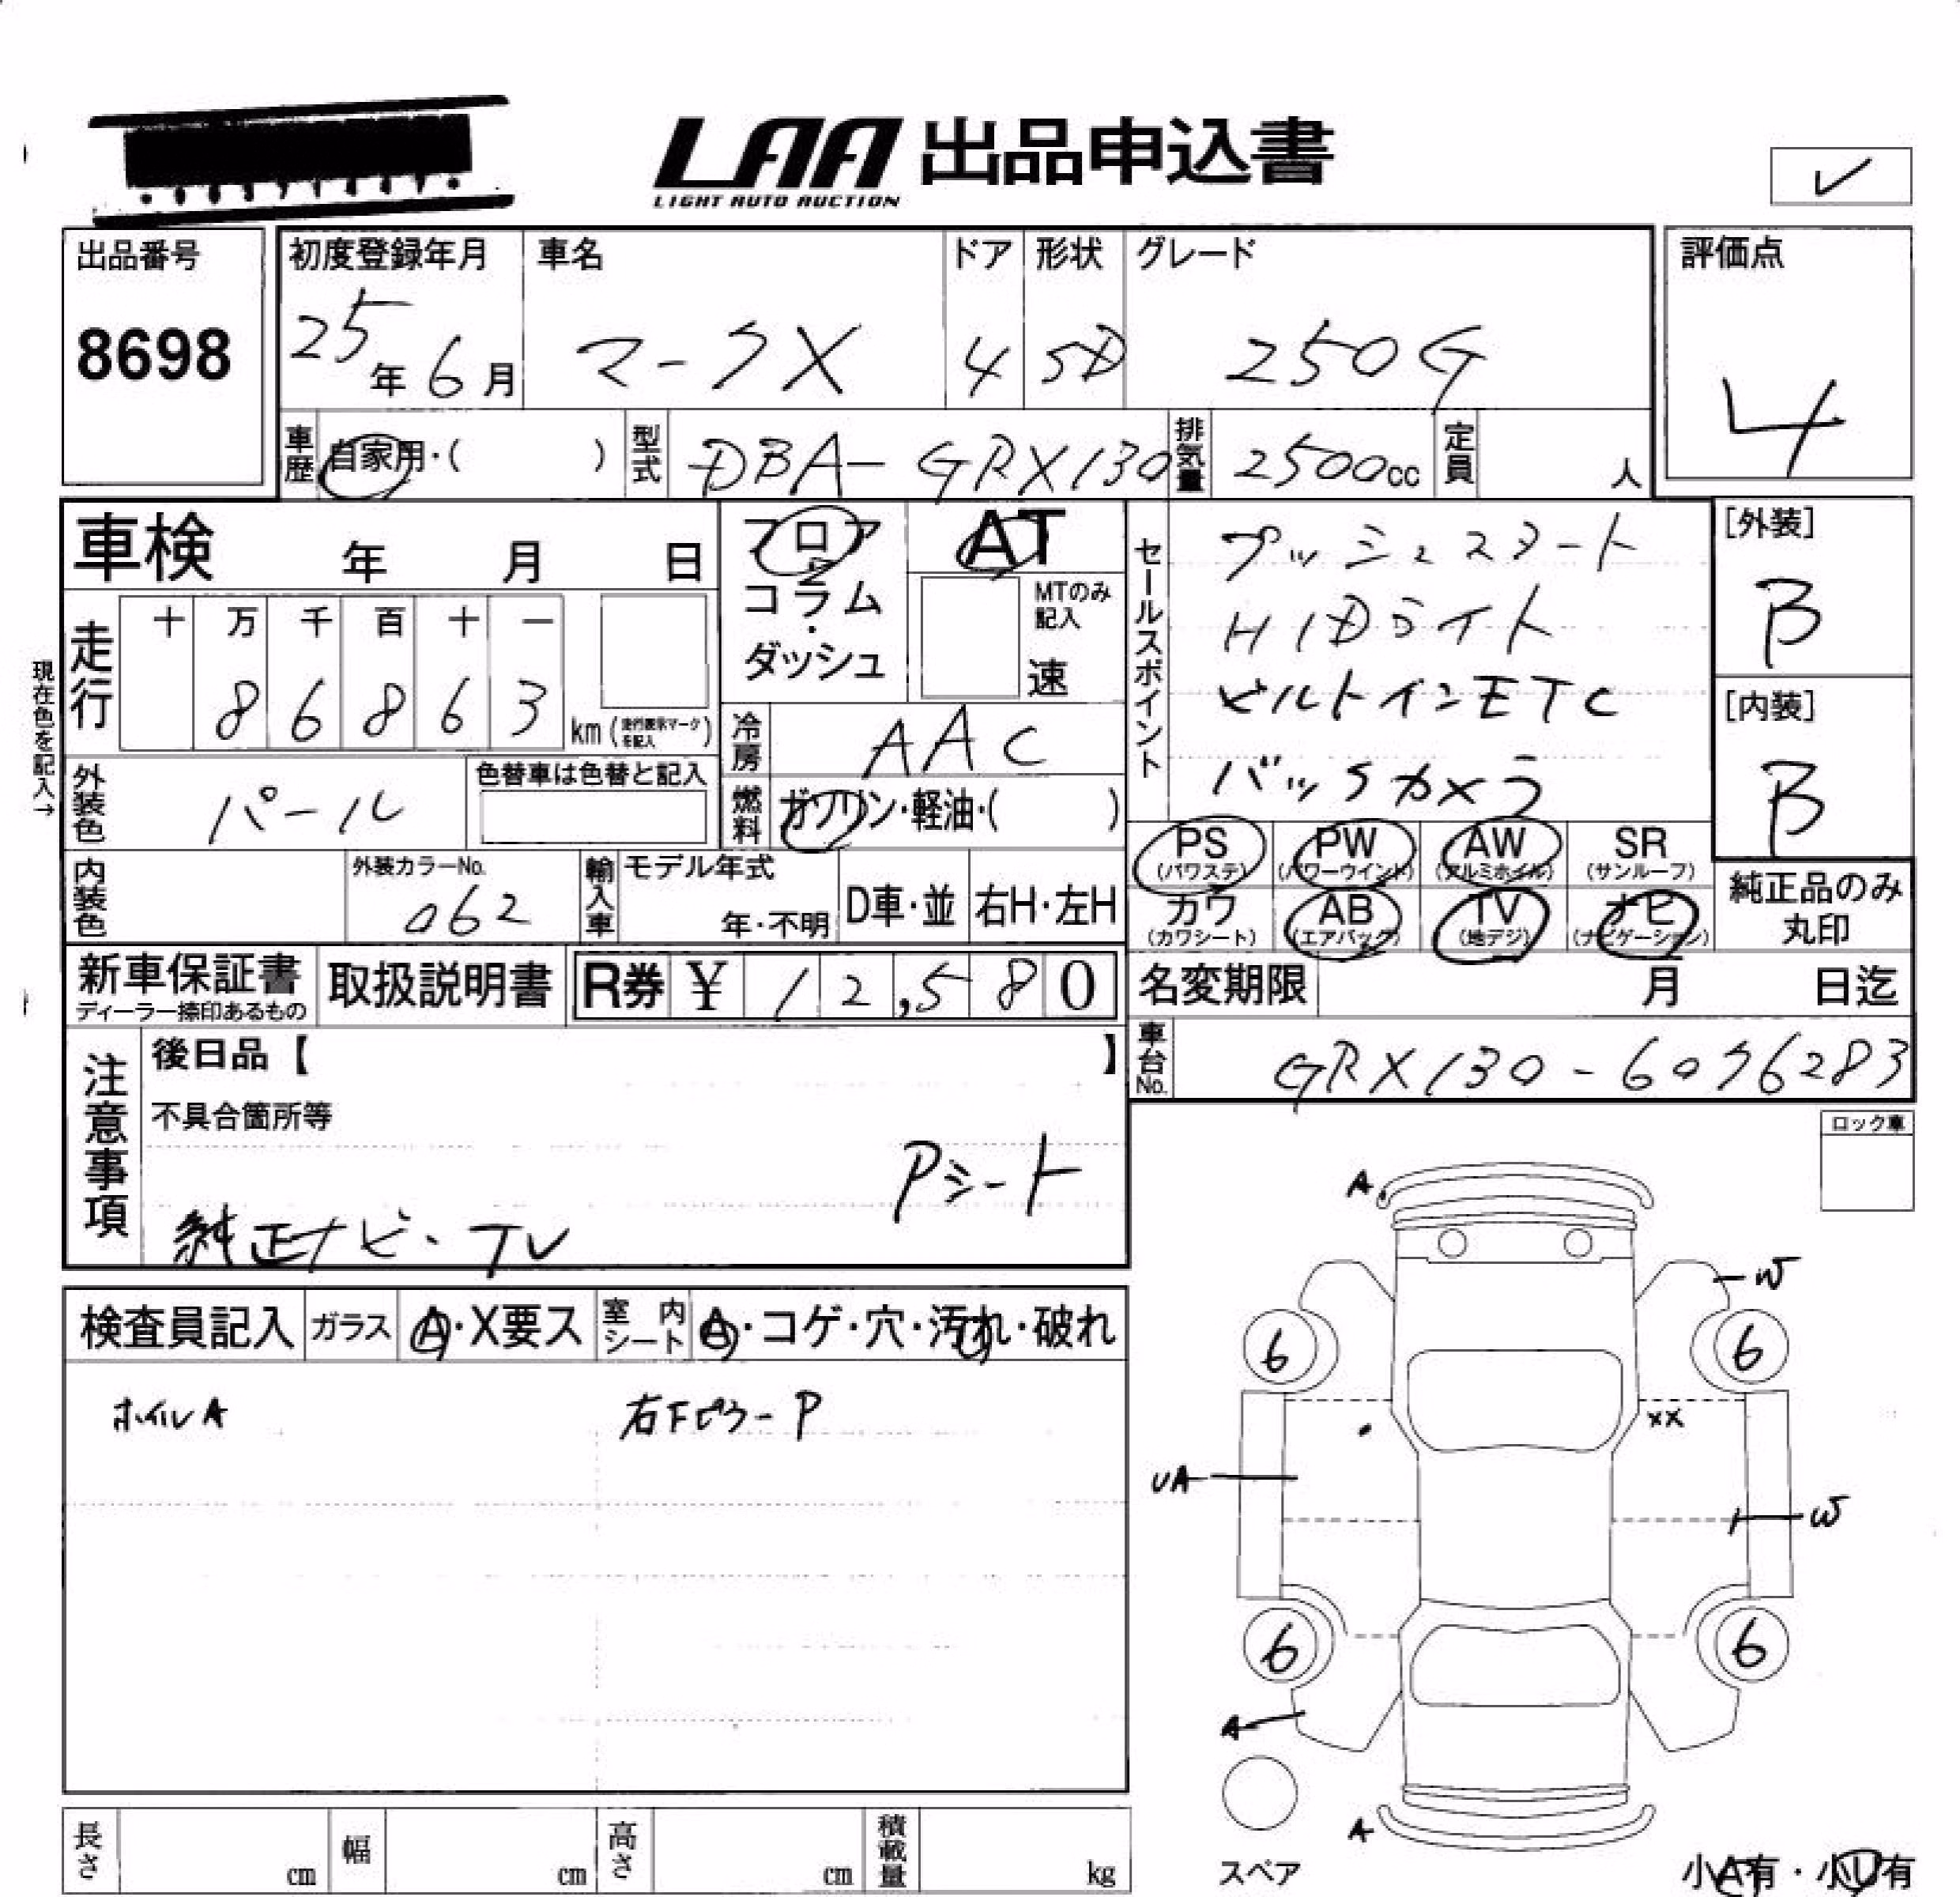 LAA 出品申込書
LIGHT AUTO AUCTION
✓
出品番号
8698
初度登録年月
25年6月
車名
マークX
ドア
4
形状
SD
グレード
250G
評価点
4
車歴
自家用・( )
型式
DBA-GRX130
排気量
2500cc
定員
人
車検 年 月 日
フロア
コラム
・
ダッシュ
AT
MTのみ
記入
速
セールスポイント
プッシュスタート
HIDライト
ビルトインETC
バックカメラ
[外装]
B
[内装]
B
現在色を記入→
走行
十 万 千 百 十 一
8 6 8 6 3
km (走行表示マークを記入)
冷房
AAC
燃料
ガソリン・軽油・( )
外装色
パール
色替車は色替と記入
PS
(パワステ)
PW
(パワーウインド)
AW
(アルミホイル)
SR
(サンルーフ)
カワ
(カワシート)
AB
(エアバック)
TV
(地デジ)
ナビ
(ナビゲーション)
純正品のみ
丸印
内装色
外装カラーNo.
062
輸入車
モデル年式
年・不明
D車・並
右H・左H
新車保証書
ディーラー捺印あるもの
取扱説明書
R券 ¥ 12,580
名変期限 月 日迄
車台No.
GRX130-6076283
注意事項
後日品【 】
不具合箇所等
Pシート
純正ナビ・TV
ロック車
検査員記入
ガラス
A・X要ス
室内シート
A・コゲ・穴・汚れ・破れ
ホイルA
右FピラーP
A
W
6
6
XX
UA
W
6
6
A
A
スペア
長さ
cm
幅
cm
高さ
cm
積載量
kg
小A有・小U有